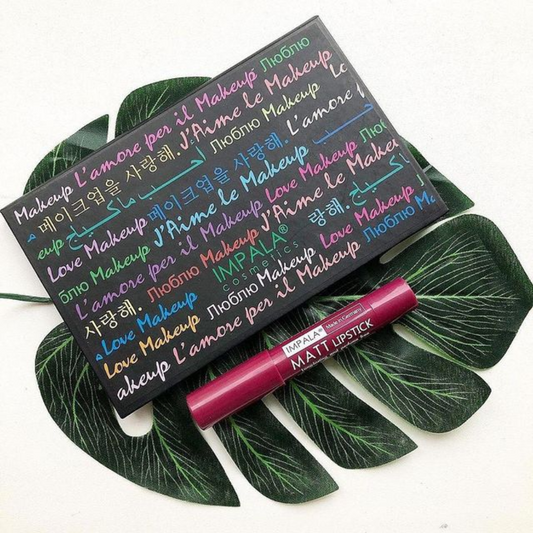 Makeup L'amore per il Makeup Люблю
메이크업을 사랑해. J'Aime le Makeup Lo
eup Люблю Makeup L'amore
Love Makeup 메이크업을 사랑해.
أحب ماكياج
Люблю Makeup J'Aime le Makeup
L'amore per il Makeup Love Makeup Люб
사랑해. Люблю Makeup J'Aime le Makeu
Love Makeup IMPALA® 랑해. Love Makeup
cosmetics
Love Makeup Люблю Makeup Люблю Ma
akeup L'amore per il Makeup
IMPALA®
Made in Germany
MATT LIPSTICK